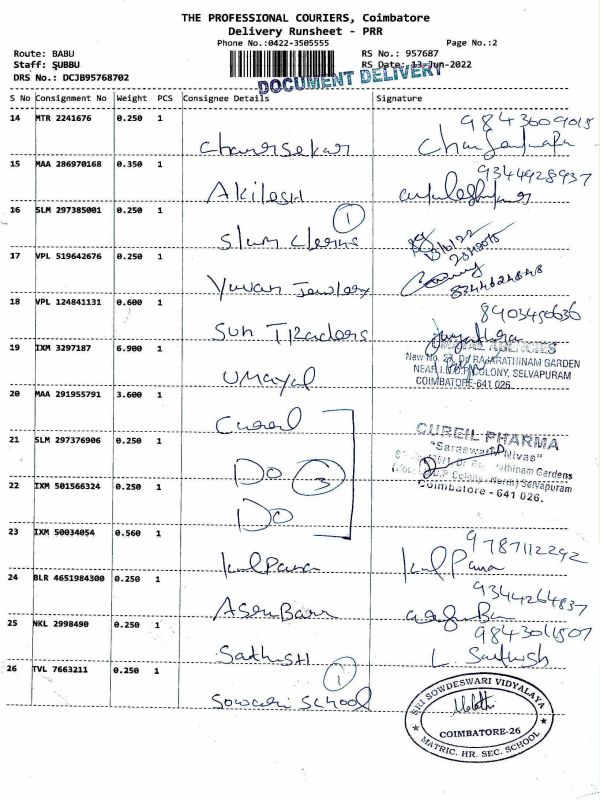 THE PROFESSIONAL COURIERS, Coimbatore
Delivery Runsheet - PRR
Phone No.:0422-3505555 Page No.:2
Route: BABU RS No.: 957687
Staff: SUBBU RS Date: 13-Jun-2022
DOCUMENT DELIVERY
DRS No.: DCJB95768702
S No Consignment No Weight PCS Consignee Details Signature
14 MTR 2241676 0.250 1
9843609015
Chanrsekar
15 MAA 286970168 0.350 1
9344928937
Akilesh
16 SLM 297385001 0.250 1
1
13/6/22
17 VPL 519642676 0.250 1
Yuvan Jewlery
18 VPL 124841131 0.600 1
8403450636
Sun Traders
19 IXM 3297187 6.900 1
UMAYAL AGENCIES
New No. 27, Dr. RAJARATHINAM GARDEN
NEAR I.O.B. COLONY, SELVAPURAM
COIMBATORE-641 026.
Umayal
20 MAA 291955791 3.600 1
Cureil
CUREIL PHARMA
"Saraswathi Nivas"
21 SLM 297376906 0.250 1
Do 3
22 IXM 501566324 0.250 1
Coimbatore - 641 026.
Do
23 IXM 50034054 0.560 1
9787112292
Kalpana Kalpana
24 BLR 4651984300 0.250 1
9344264837
25 NKL 2998490 0.250 1
9843061507
Sathish L. Sathish
26 TVL 7663211 0.250 1
1
Sowderi School
SRI SOWDESWARI VIDYALAYA
COIMBATORE-26
MATRIC. HR. SEC. SCHOOL